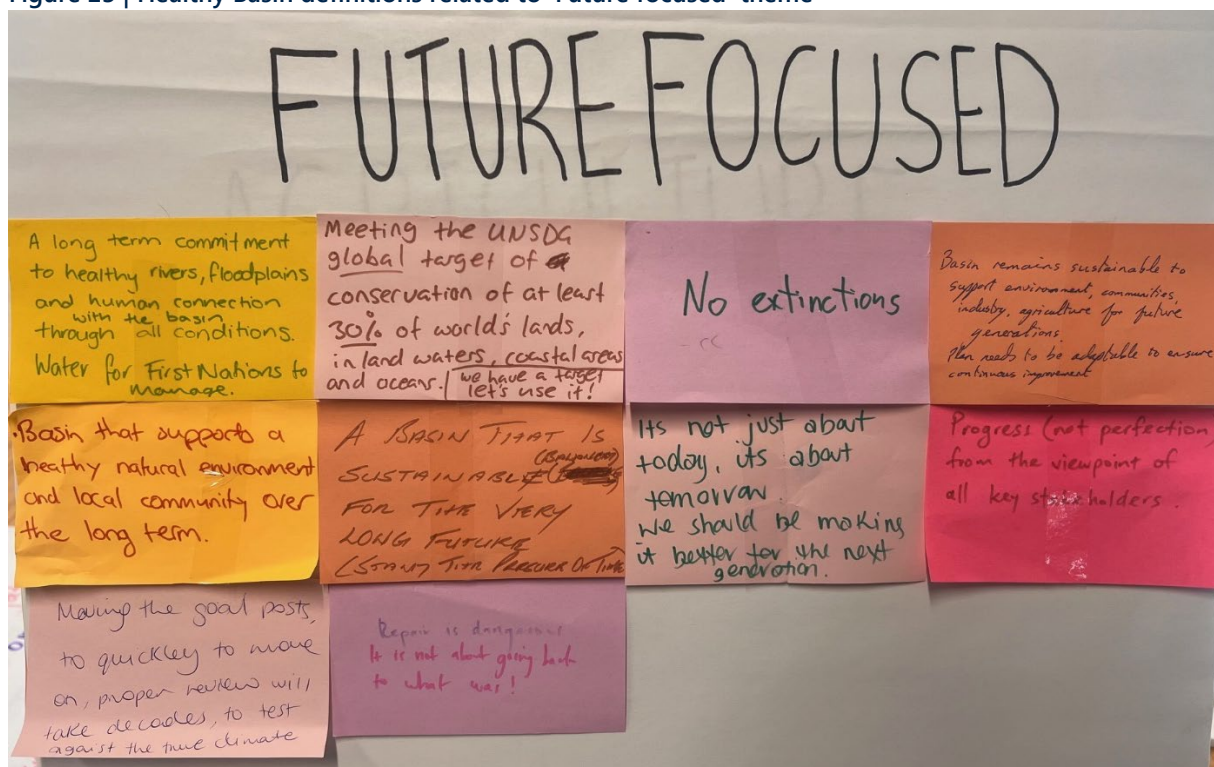 Figure 25 | Healthy Basin definitions related to 'Future focused' theme
FUTURE FOCUSED
A long term commitment
to healthy rivers, floodplains
and human connection
with the basin
through all conditions.
Water for First Nations to
manage.
Meeting the UNSDG
global target of
conservation of at least
30% of world's lands,
in land waters, coastal areas
and oceans.
we have a target
let's use it!
No extinctions
Basin remains sustainable to
support environment, communities,
industry, agriculture for future
generations.
Plan needs to be adaptable to ensure
continuous improvement
Basin that supports a
heathy natural environment
and local community over
the long term.
A BASIN THAT IS
(BALANCED)
SUSTAINABLE
FOR THE VERY
LONG FUTURE
(STAND THE PRESSURE OF TIME
Its not just about
today, its about
tomorrow.
we should be making
it better for the next
generation.
Progress (not perfection)
from the viewpoint of
all key stakeholders.
Moving the goal posts,
to quickley to move
on, proper review will
take decades, to test
against the true climate
Repair is dangerous
It is not about going back
to what was!